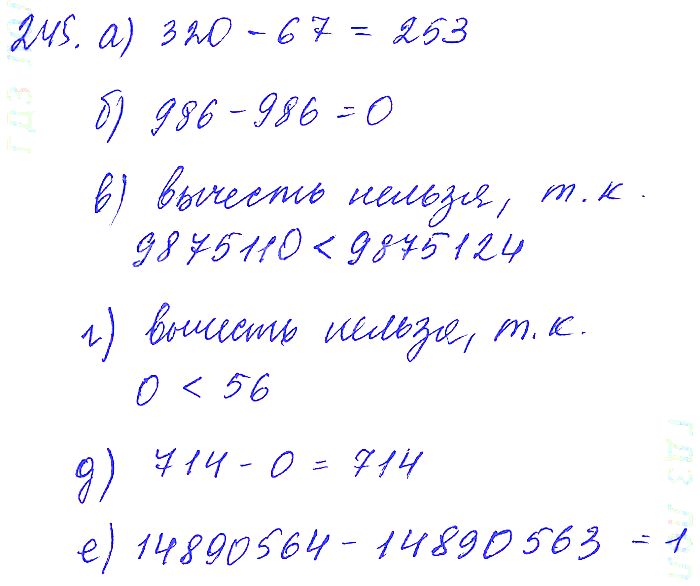 245. а) 320 - 67 = 253
б) 986 - 986 = 0
в) вычесть нельзя, т. к.
9875110 < 9875124
г) вычесть нельзя, т. к.
0 < 56
д) 714 - 0 = 714
е) 14890564 - 14890563 = 1